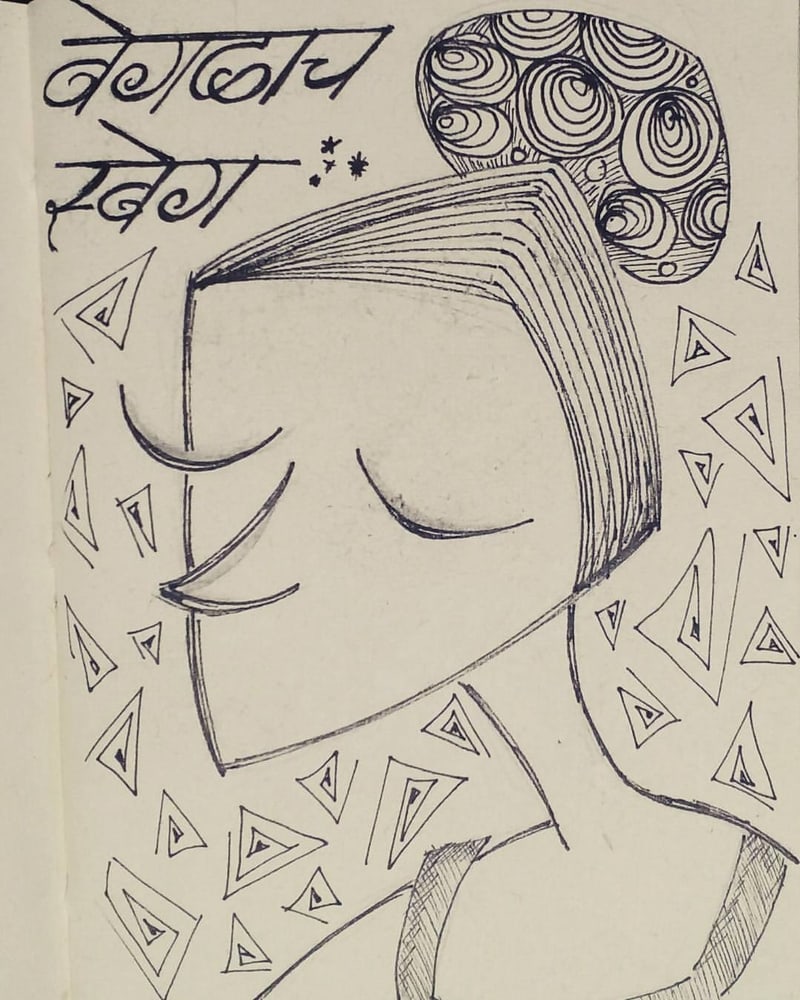 वेगळाच
स्वेग